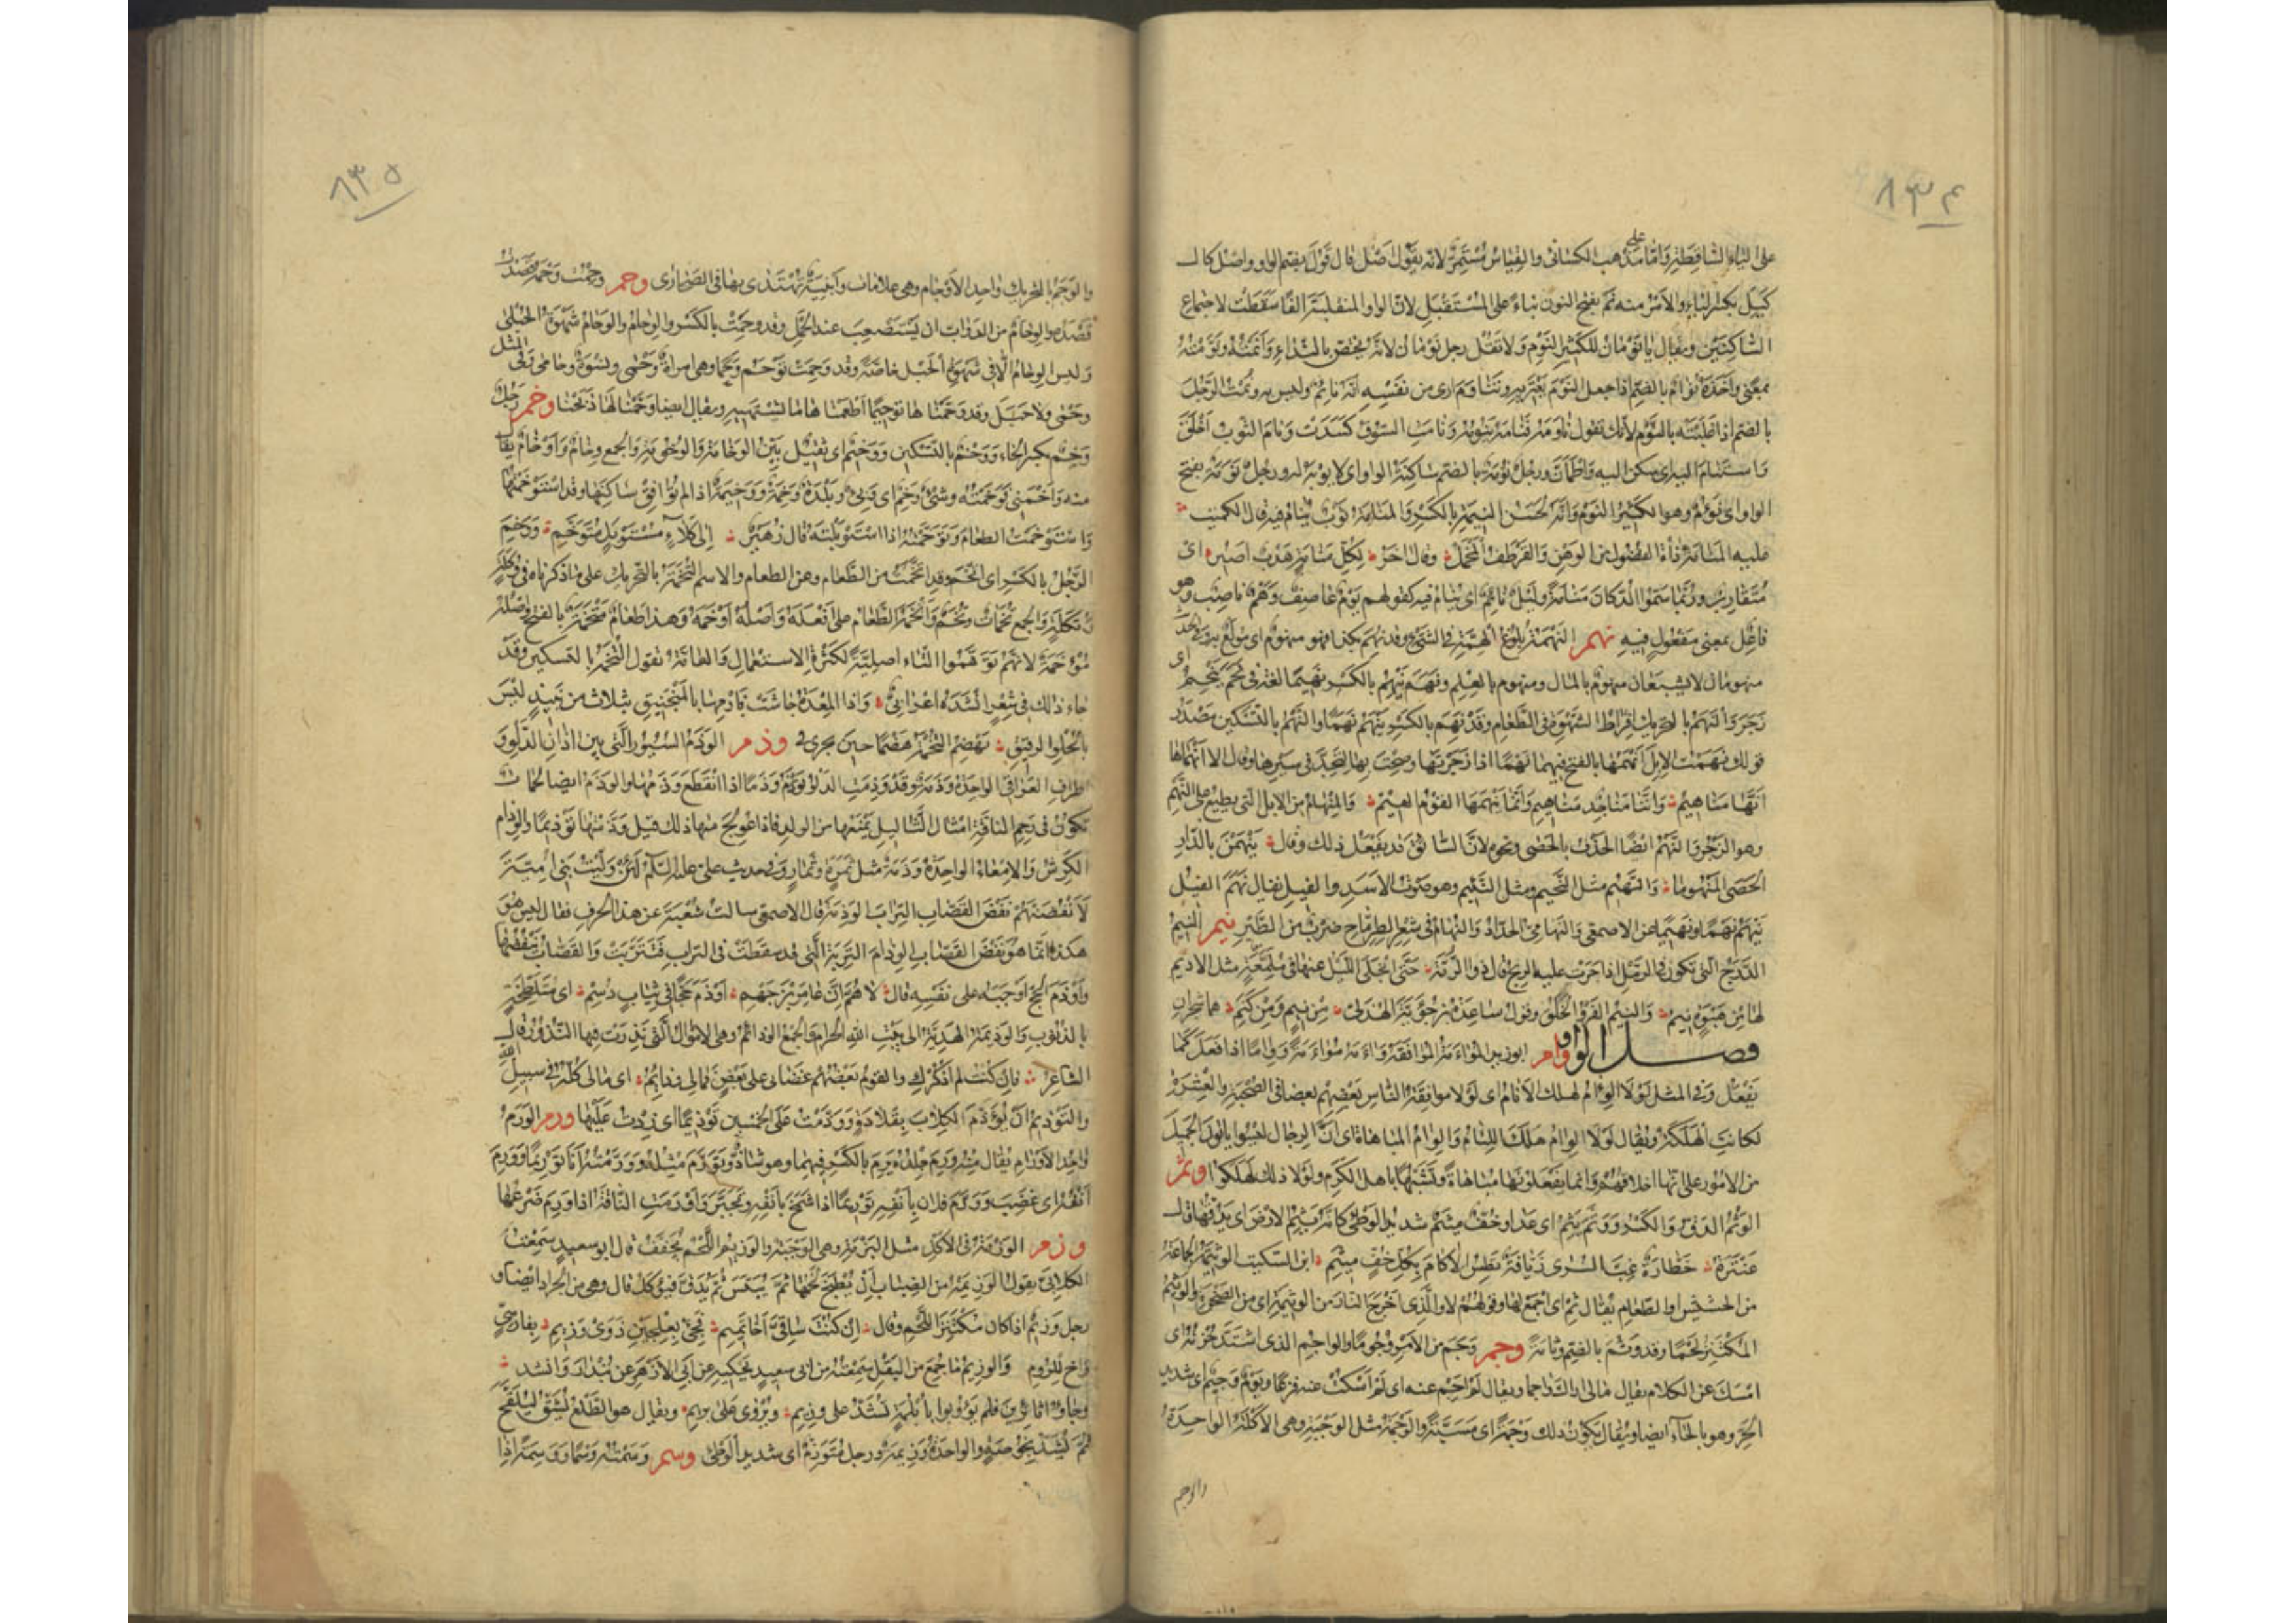 ٨٣٤
على الياء الساقطة واما على مذهب الكسائى والقياس مستمر لانه يقول اصل قال قول بضم الواو واصل كال
كيل بكسر الياء والامر منه نم بفتح النون بناء على المستقبل لان الواو المنقلبة الفا سقطت لاجتماع
الساكنين ويقال يا نومان للكثير النوم ولا تقل رجل نومان لانه يختص بالنداء وانمته ونومته
بمعنى واخذه نوام بالضم اذا جعل النوم يعتريه وتناوم ارى من نفسه انه نائم وليس به ونمت الرجل
بالضم اذا غلبته بالنوم لانك تقول ناومه فنامه ينومه ونامت السوق كسدت ونام الثوب اخلق
واستنام اليه اى سكن اليه واطمان ورجل نومة بالضم ساكنة الواو اى لا يوبه له ورجل نومة بفتح
الواو اى نؤوم وهو الكثير النوم وانه لحسن النيمة بالكسر والمنامة ثوب ينام فيه قال الكميت
عليه المنامة ذات الفضول من الوهن والقرطف المخمل وقال اخر لكل منامة هدب اصير اى
متقارب وربما سموا الدكان منامة وليل نائم اى ينام فيه كقولهم يوم عاصف وهم ناصب وهو
فاعل بمعنى مفعول فيه نهم النهمة بلوغ الهمة فى الشئ وقد نهم بكذا فهو منهوم اى مولع به وفى الحديث
منهومان لا يشبعان منهوم بالمال ومنهوم بالعلم ونهم ينهم بالكسر نهيما لغة فى نحم ينحم اى
زحر والنهم بالتحريك افراط الشهوة فى الطعام وقد نهم بالكسر ينهم نهما والنهم بالتسكين مصدر
قولك نهمت الابل انهمها بالفتح فيهما نهما اذا زجرتها وصحت بها لتجد فى سيرها وقال الا انهماها
انها مناهيم واننا مناجد متاهيم وانما ينهمها القوم الهيم والمنهام من الابل التى تطيع على النهم
وهو الزجر والنهم ايضا الحذف بالحصى ونحوه لان السائق قد يفعل ذلك وقال ينهمن بالدار
الحصى المنهوما والنهيم مثل النحيم ومثل النئيم وهو صوت الاسد والفيل يقال نهم الفيل
ينهم نهما ونهيما عن الاصمعى والنهامى الحداد والنهام فى شعر الطرماح ضرب من الطير نيم النيم
الدرج التى تكون فى الرمل اذا جرت عليه الريح قال ذو الرمة حتى انجلى الليل عنها فى ملمعة مثل الاديم
لها من هبوة نيم والنيم الفرو الخلق وقول ساعدة بن جؤية الهذلى من نيم ومن كتم هما شجران
فصل الواو وام ابو زيد المواءمة الموافقة واءمه مواءمة ووئاما اذا فعل كما
يفعل وفى المثل لولا الوئام لهلك الانام اى لولا موافقة الناس بعضهم بعضا فى الصحبة والعشرة
لكانت الهلكة ويقال لولا الوئام هلك اللئام والوئام المباهاة اى ان الرجال ليسوا ياتون الجميل
من الامور على انها اخلاقهم وانما يفعلونها مباهاة وتشبها باهل الكرم ولولا ذلك لهلكوا وثم
الوثم الدق والكسر ووثم يثم اى عدا وخف ميثم شديد الوطئ كانه يثم الارض اى يدقها قال
عنترة خطارة غب السرى زيافة تطس الاكام بكل خف ميثم ابن السكيت الوثيمة الجماعة
من الحشيش او الطعام يقال ثم اى اجمع لها وقولهم لا والذى اخرج النار من الوثيمة اى من الصخرة والوثيم
المكتنز لحما وقد وثم بالضم وثامة وجم وجم من الامر وجوما والواجم الذى اشتد حزنه اى
امسك عن الكلام يقال مالى اراك واجما ويقال لم اجم عنه اى لم اسكت عنه فزعا ويوم وجيم اى شديد
الحر وهو بالحاء ايضا ويقال يكون ذلك وجمة اى مسبة والوجمة مثل الوجبة وهى الاكلة الواحدة
والوجم
٨٣٥
والوجم بالتحريك واحد الاوجام وهى علامات وابنية يهتدى بها فى الصحارى وحم وحمت وحمه قصدت
قصده والوحام من الدواب ان يستصعب عند الحمل وقد وحمت بالكسر والوحام والوحام شهوة الحبلى
وليس الوحام الا فى شهوة الحبل خاصة وقد وحمت توحم وحما وهى امراة وحمى ونسوة وحامى وفى المثل
وحمى ولا حبل وقد وحمنا لها توحيما اطعمناها ما تشتهيه ويقال ايضا وحمنا لها ذبحنا وخم رجل
وخم بكسر الخاء ووخم بالتسكين ووخيم اى ثقيل بين الوخامة والوخومة والجمع وخام واوخام يقال
منه واخمنى فوخمته وشئ وخم اى وبئ وبلدة وخمة ووخيمة اذا لم توافق ساكنها وقد استوخمتها
واستوخمت الطعام وتوخمته اذا استوبلته قال زهير الى كلاء مستوبل متوخم ووخم
الرجل بالكسر اى اتخم وقد اتخمت من الطعام وعن الطعام والاسم التخمة بالتحريك على ما ذكرناه فى وكلة
وتكلة والجمع تخمات وتخم واتخمه الطعام على افعله واصله اوخمه وهذا طعام متخمة بالفتح واصله
موخمة لانهم توهموا التاء اصلية لكثرة الاستعمال والعامة تقول التخمة بالتسكين وقد
جاء ذلك فى شعر انشده اعرابى واذا المعدة جاشت فارمها بالمنجنيق بثلاث من نبيذ ليس
بالحلو الرقيق تهضم التخمة هضما حين تجرى فى وذم الوذم السيور التى بين اذان الدلو و
اطراف العراقى الواحدة وذمة وقد وذمت الدلو توذم وذما اذا انقطع وذمها والوذم ايضا لحمات
تكون فى رحم الناقة امثال الثآليل يمنعها من الولد فاذا عولج منها ذلك قيل وذمتها توذيما والوذام
الكرش والامعاء الواحدة وذمة مثل ثمرة وثمار وفى حديث على عليه السلم لئن وليت بنى امية
لانفضنهم نفض القصاب التراب الوذمة قال الاصمعى سالت شعبة عن هذا الحرف فقال ليس هو
هكذا انما هو نفض القصاب الوذام التربة التى قد سقطت فى التراب فتتربت والقصاب ينفضها
واوذم الحج اوجبه على نفسه قال لاهم ان عامر بن جهم اوذم حجا فى ثياب دسم اى متلطخة
بالذنوب والوذيمة الهدية الى بيت الله الحرام والجمع الوذائم وهى الاموال التى نذرت فيها النذور قال
الشاعر فان كنت لم اذكرك والقوم بعضهم غضابى على بعض فمالى وذائم اى مالى كله فى سبيل الله
والتوذيم ان يوذم الكلاب بقلادة ووذمت على الخمسين توذيما اى زدت عليها ورم الورم
واحد الاورام يقال منه ورم جلده يرم بالكسر فيهما وهو شاذ وتورم مثله وورمته انا توريما وورم
انفه اى غضب وورم فلان بانفه توريما اذا شمخ بانفه وتجبر واورمت الناقة اذا ورم ضرعها
وزم الوزمة فى الاكل مثل البزمة وهى الوجبة والوزيم اللحم يجفف قال ابو سعيد سمعت
الكلابى يقول الوزيمة من الضباب ان يطبخ لحمها ثم ييبس ثم يدق فيؤكل قال وهى من الجراد ايضا و
رجل وزيم اذا كان مكتنز اللحم وقال ان كنت ساقى اخا تميم فجئ بعلجين ذوى وزيم بفارسى
واخ للروم والوزيم ما جمع من البقل سمعته من ابى سعيد يحكيه عن ابى الازهر عن بندار وانشد
وجاوا ثائرين فلم يؤوبوا بابلمة تشد على وزيم ويروى على بزيم ويقال هو الطلع يشق ليلقح
ثم يشد بخوصة والواحدة وزيمة ورجل متوزم اى شديد الوطئ وسم وسمته وسما ووسمة اذا